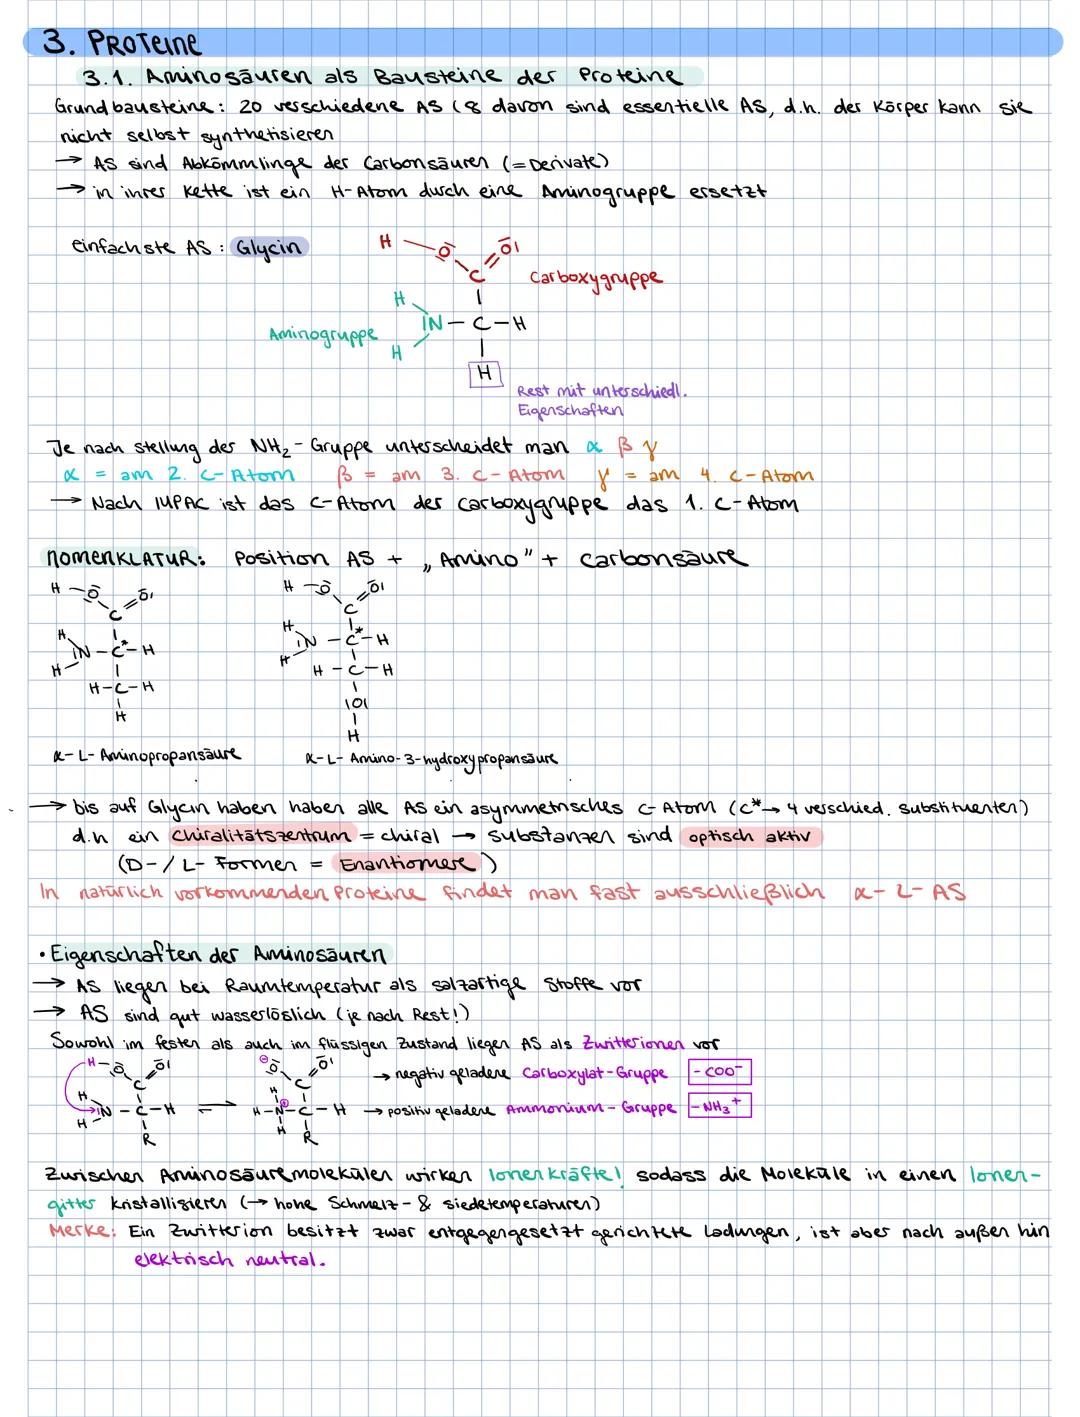 3. Proteine
3.1. Aminosäuren als Bausteine der Proteine
Grundbausteine: 20 verschiedene AS (8 davon sind essentielle AS, d.h. der Körper kann sie
nicht selbst synthetisieren
→ AS sind Abkömmlinge der Carbonsäuren (= Derivate)
→ in ihrer Kette ist ein H-Atom durch eine Aminogruppe ersetzt
einfachste AS: Glycin
Carboxygruppe
Aminogruppe
Rest mit unterschiedl.
Eigenschaften
Je nach Stellung der NH₂-Gruppe unterscheidet man α β γ
α = am 2. C-Atom β = am 3. C-Atom γ = am 4. C-Atom
→ Nach IUPAC ist das C-Atom der Carboxygruppe das 1. C-Atom
NOMENKLATUR: Position AS + „Amino" + Carbonsäure
α-L-Aminopropansäure
α-L-Amino-3-hydroxypropansäure
→ bis auf Glycin haben haben alle AS ein asymmetrisches C-Atom (C*→ 4 verschied. Substituenten)
d.h ein Chiralitätszentrum = chiral → Substanzen sind optisch aktiv
(D-/L-Formen = Enantiomere)
In natürlich vorkommenden Proteine findet man fast ausschließlich α-L-AS
• Eigenschaften der Aminosäuren
→ AS liegen bei Raumtemperatur als salzartige Stoffe vor
→ AS sind gut wasserlöslich (je nach Rest!)
Sowohl im festen als auch im flüssigen Zustand liegen AS als Zwitterionen vor
→ negativ geladene Carboxylat-Gruppe -COO⁻
→ positiv geladene Ammonium-Gruppe -NH₃⁺
Zwischen Aminosäuremolekülen wirken Ionenkräfte! sodass die Moleküle in einen Ionen-
gitter kristallisieren (→ hohe Schmelz- & Siedetemperaturen)
Merke: Ein Zwitterion besitzt zwar entgegengesetzt gerichtete Ladungen, ist aber nach außen hin
elektrisch neutral.